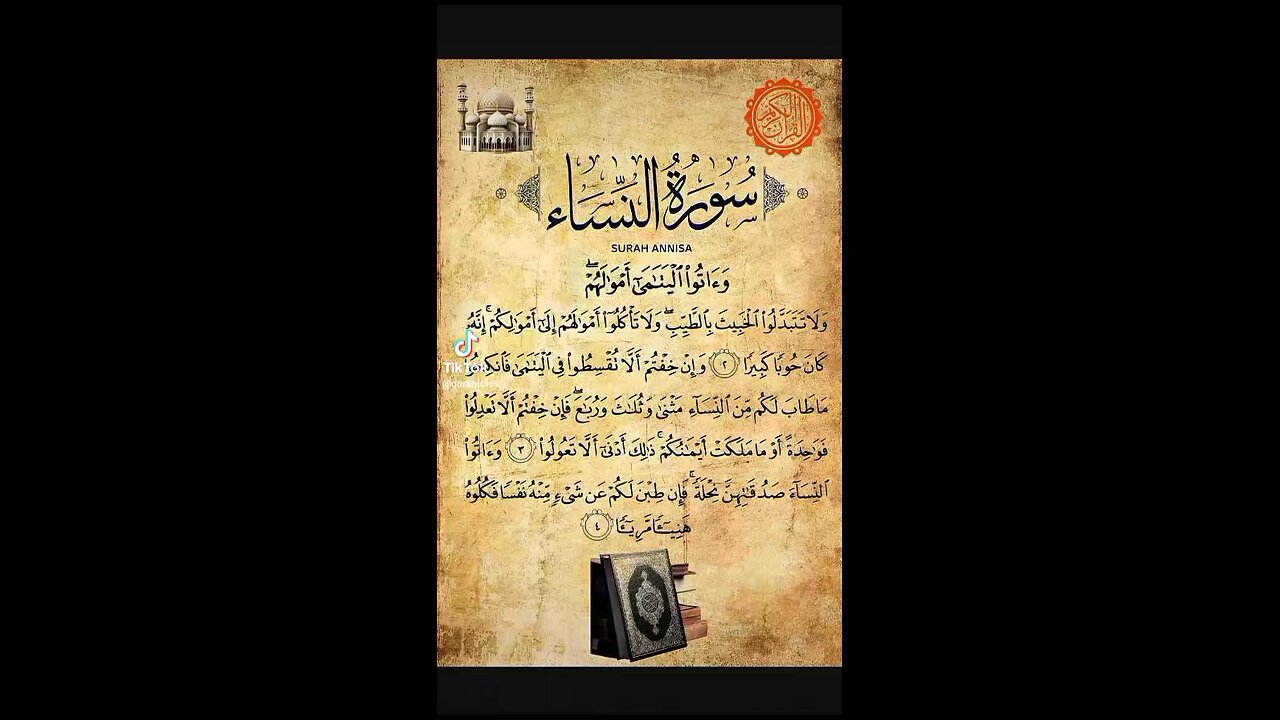 القرآن الكريم
سُورَةُ النِّسَاء
SURAH ANNISA
وَءَاتُوا۟ ٱلْيَتَـٰمَىٰٓ أَمْوَٰلَهُمْ ۖ
وَلَا تَتَبَدَّلُوا۟ ٱلْخَبِيثَ بِٱلطَّيِّبِ ۖ وَلَا تَأْكُلُوٓا۟ أَمْوَٰلَهُمْ إِلَىٰٓ أَمْوَٰلِكُمْ ۚ إِنَّهُۥ
كَانَ حُوبًا كَبِيرًا ٢ وَإِنْ خِفْتُمْ أَلَّا تُقْسِطُوا۟ فِى ٱلْيَتَـٰمَىٰ فَٱنكِحُوا۟
مَا طَابَ لَكُم مِّنَ ٱلنِّسَآءِ مَثْنَىٰ وَثُلَـٰثَ وَرُبَـٰعَ ۖ فَإِنْ خِفْتُمْ أَلَّا تَعْدِلُوا۟
فَوَٰحِدَةً أَوْ مَا مَلَكَتْ أَيْمَـٰنُكُمْ ۚ ذَٰلِكَ أَدْنَىٰٓ أَلَّا تَعُولُوا۟ ٣ وَءَاتُوا۟
ٱلنِّسَآءَ صَدُقَـٰتِهِنَّ نِحْلَةً ۚ فَإِن طِبْنَ لَكُمْ عَن شَىْءٍ مِّنْهُ نَفْسًا فَكُلُوهُ
هَنِيٓـًٔا مَّرِيٓـًٔا ٤
TikTok